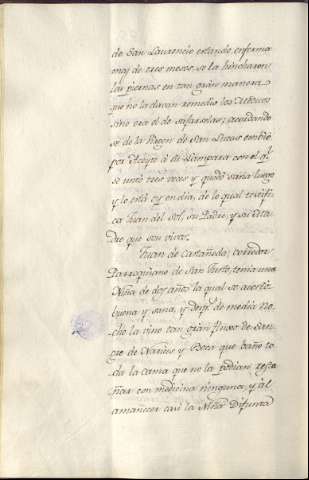 de San Laurencio estando enferma
mas de tres meses, se la hincharon
las piernas en tan gran manera
que no la davan remedio los Medicos
sino era el de sajarselas; acordando
se de la Virgen de San Lucas embió
por Aceyte á su Lampara con el ql
se untó tres veces y quedó sana luego
y lo está oy en dia, de lo qual testifi
ca Juan del Sol, su Padre, y su Ma
dre que son vivos.
Juan de Castañeda, Corredor
Parroquiano de San Justo, tenia una
Niña de dos años la qual se acostó
buena y sana, y desps. de media no
che la vino tan gran fluxo de San
gre de Narices y Boca que baño to
da la cama que no la podian resta
ñar con medicina ninguna, y al
amanecer casi la Niña Difunta